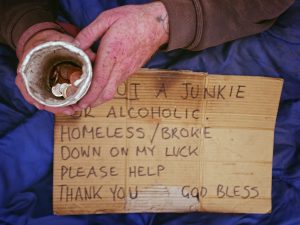 OT A JUNKIE
OR ALCOHOLIC.
HOMELESS/BROKE
DOWN ON MY LUCK
PLEASE HELP
THANK YOU GOD BLESS